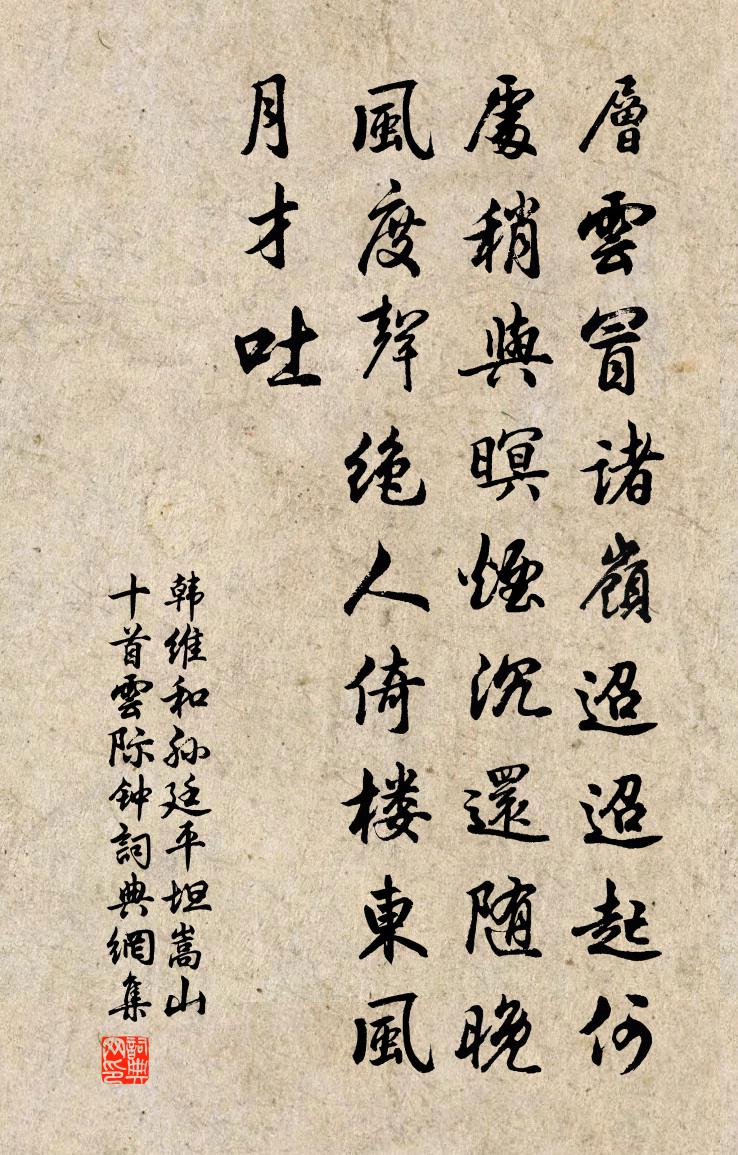 層雲冒諸嶺迢迢起何
處稍與暝煙沉還随晚
風度聲绝人倚楼東風
月才吐
韩维和孙廷平坦嵩山
十首雲际钟詞典網集
詞典
网印